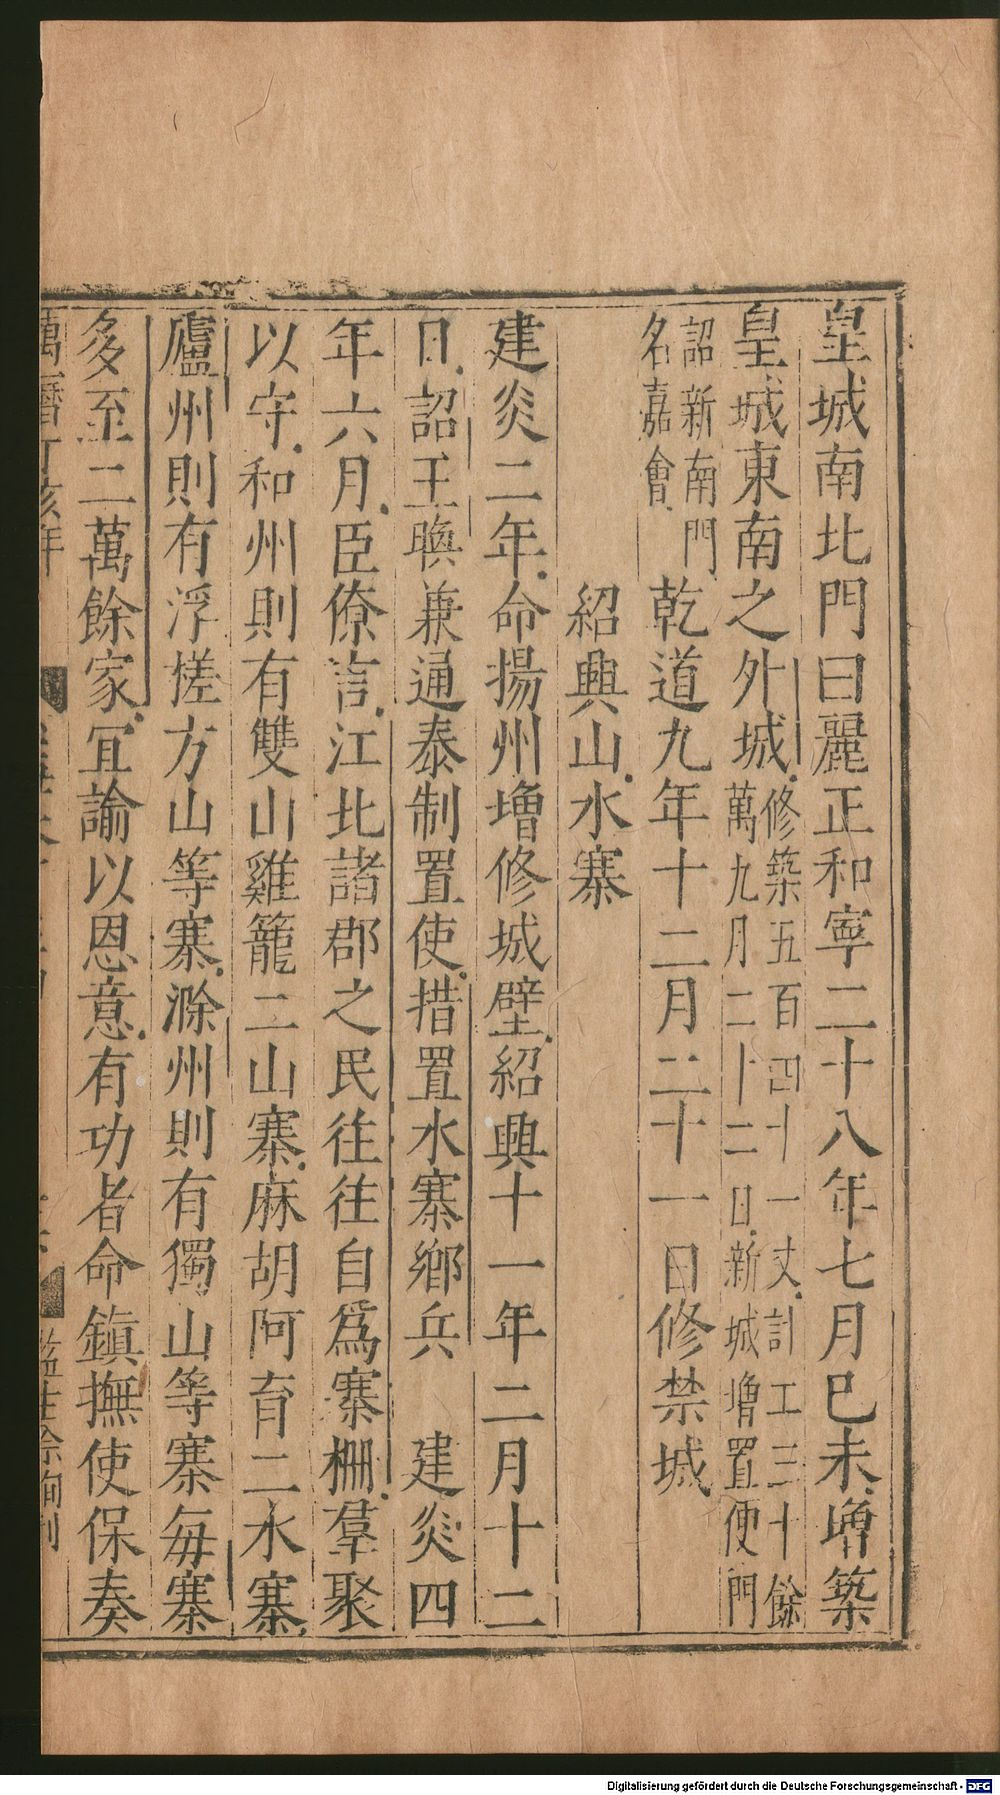 皇城南北門曰麗正和寧二十八年七月巳未增築
皇城東南之外城修築五百四十一丈計工三十餘
萬九月二十二日新城增置便門
詔新南門
名嘉會乾道九年十二月二十一日修禁城
紹興山水寨
建炎二年命揚州增修城壁紹興十一年二月十二
日詔王㬇兼通泰制置使措置水寨鄉兵 建炎四
年六月臣僚言江北諸郡之民往往自爲寨柵羣聚
以守和州則有雙山雞籠二山寨麻胡阿育二水寨
廬州則有浮槎方山等寨滁州則有獨山等寨每寨
多至二萬餘家冝諭以恩意有功者命鎮撫使保奏
萬曆丁亥年
Digitalisierung gefördert durch die Deutsche Forschungsgemeinschaft - DFG